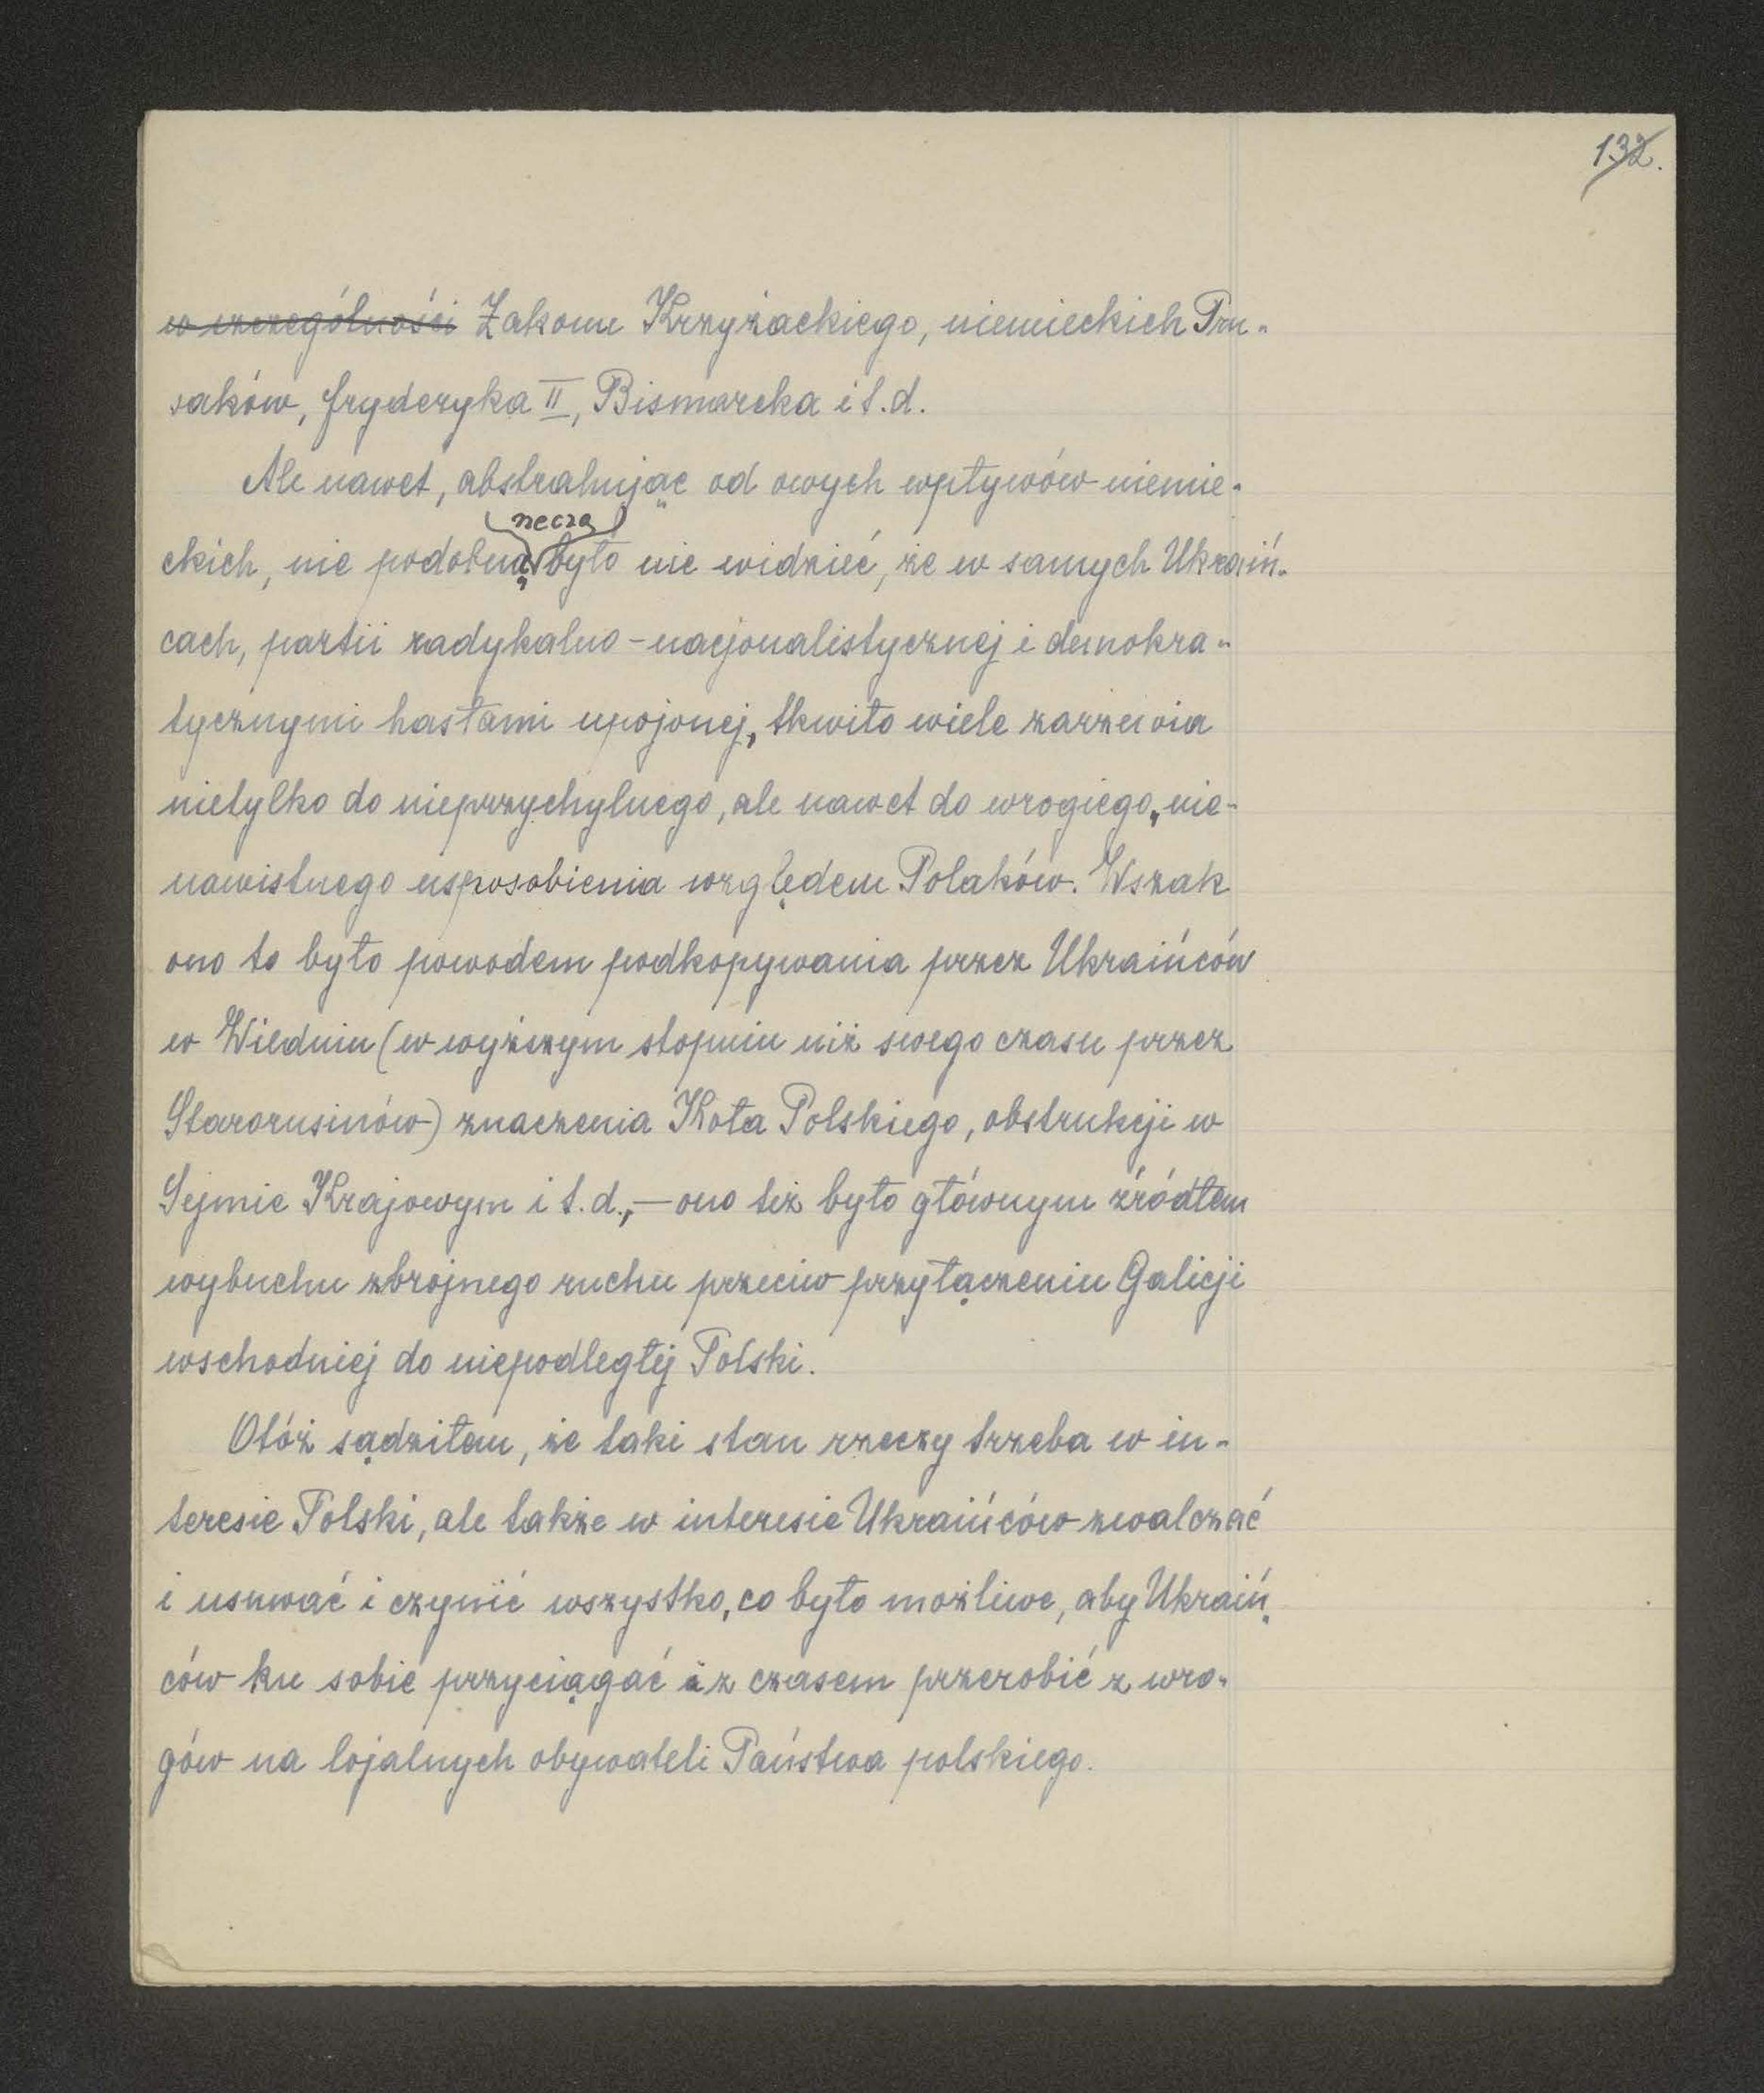 132.
w szczególności Zakonu Krzyżackiego, niemieckich Pru-
saków, Fryderyka II, Bismarcka i t.d.
Ale nawet, abstrahując od owych wpływów niemie-
rzeczą
ckich, nie podobną było nie widzieć, że w samych Ukraiń-
cach, partii radykalno-nacjonalistycznej i demokra-
tycznymi hasłami upojonej, tkwiło wiele zarzewia
nietylko do nieprzychylnego, ale nawet do wrogiego, nie-
nawistnego usposobienia względem Polaków. Wszak
ono to było powodem podkopywania przez Ukraińców
w Wiedniu (w wyższym stopniu niż swego czasu przez
Starorusinów) znaczenia Koła Polskiego, obstrukcji w
Sejmie Krajowym i t.d., — ono też było głównym źródłem
wybuchu zbrojnego ruchu przeciw przyłączeniu Galicji
wschodniej do niepodległej Polski.
Otóż sądziłem, że taki stan rzeczy trzeba w in-
teresie Polski, ale także w interesie Ukraińców zwalczać
i usuwać i czynić wszystko, co było możliwe, aby Ukraiń-
ców ku sobie przyciągać i z czasem przerobić z wro-
gów na lojalnych obywateli Państwa polskiego.